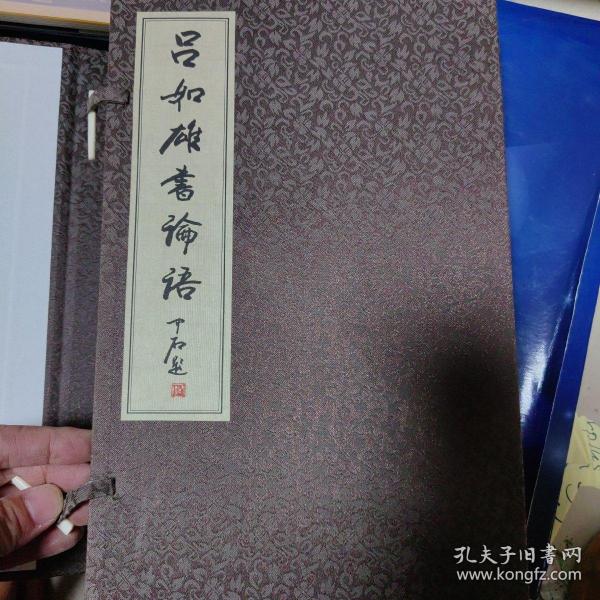 吕如雄書論語
中石题
孔夫子旧书网
www.kongfz.com